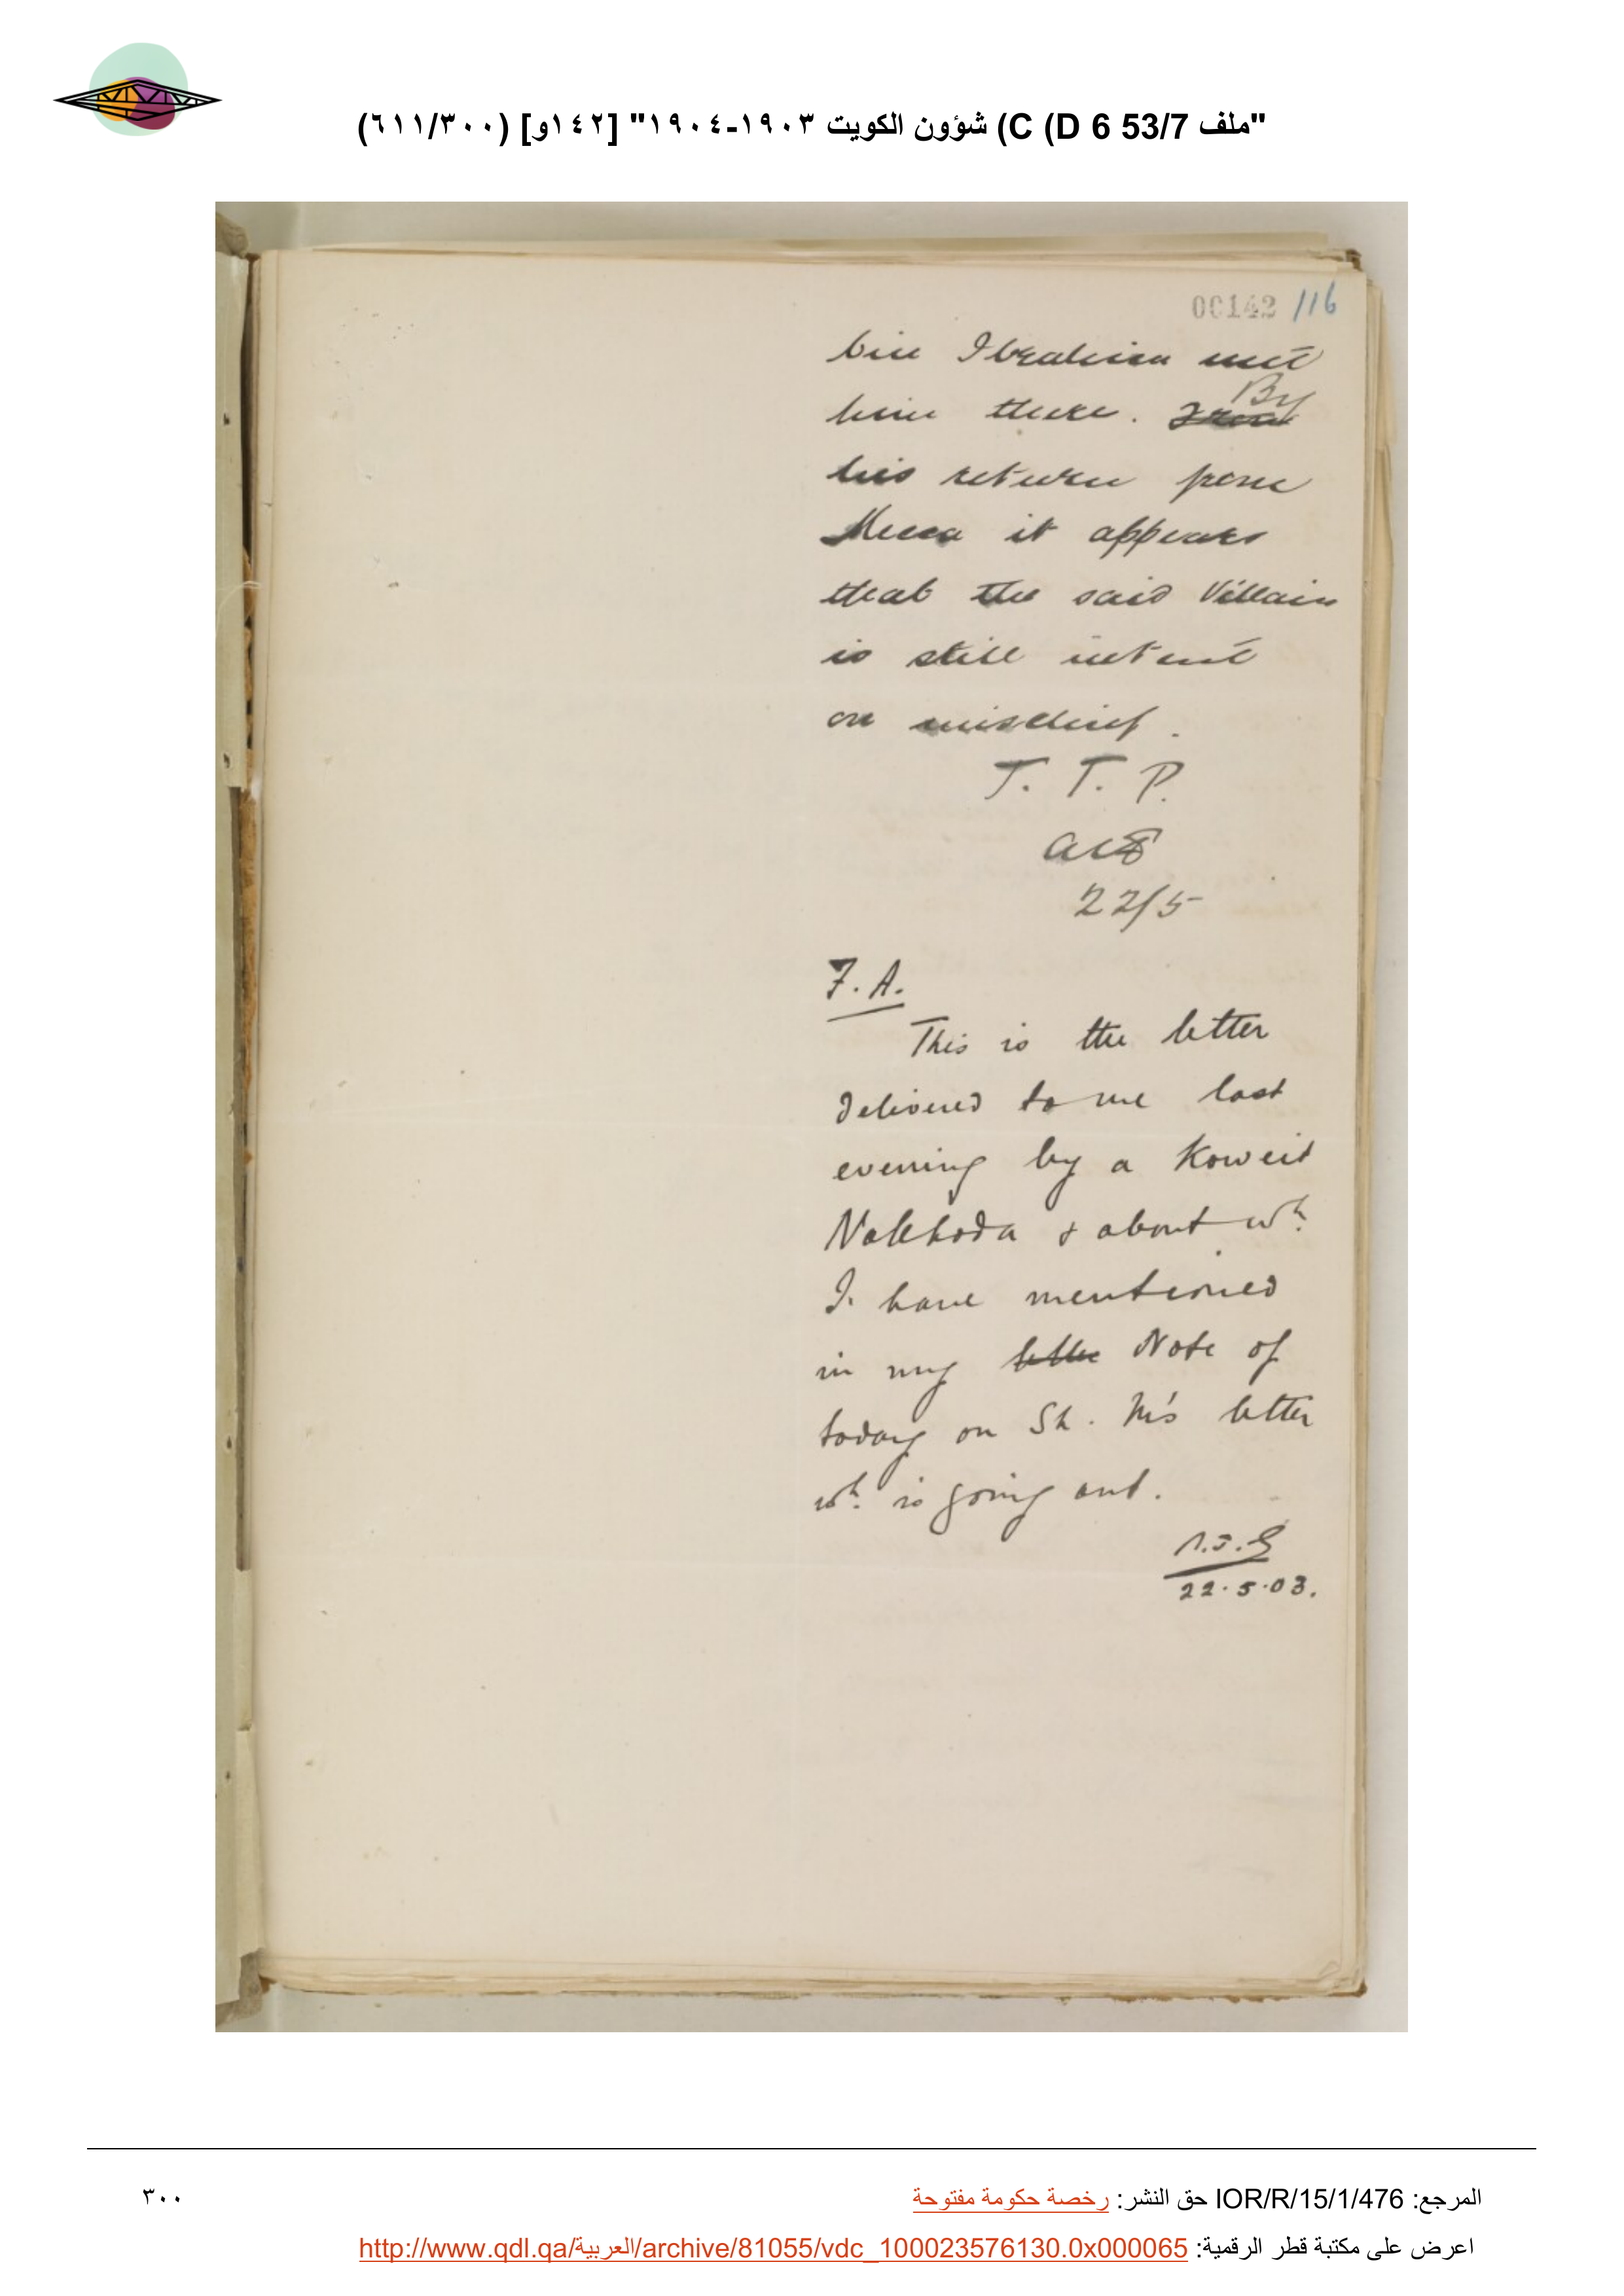 "ملف 53/7 C (D 6) شؤون الكويت ١٩٠٣-١٩٠٤" [١٤٢و] (٦١١/٣٠٠)
00142 116
bin Ibrahim met
By
him there. From
his return from
Mecca it appears
that the said Villain
is still intent
on mischief.
T. T. P.
22/5
F. A.
This is the letter
delivered to me last
evening by a Koweit
Nakhoda & about wh.
I have mentioned
in my letter Note of
today on Sh. M's letter
wh. is going out.
22.5.03.
المرجع: IOR/R/15/1/476 حق النشر: رخصة حكومة مفتوحة
٣٠٠
اعرض على مكتبة قطر الرقمية: http://www.qdl.qa/العربية/archive/81055/vdc_100023576130.0x000065